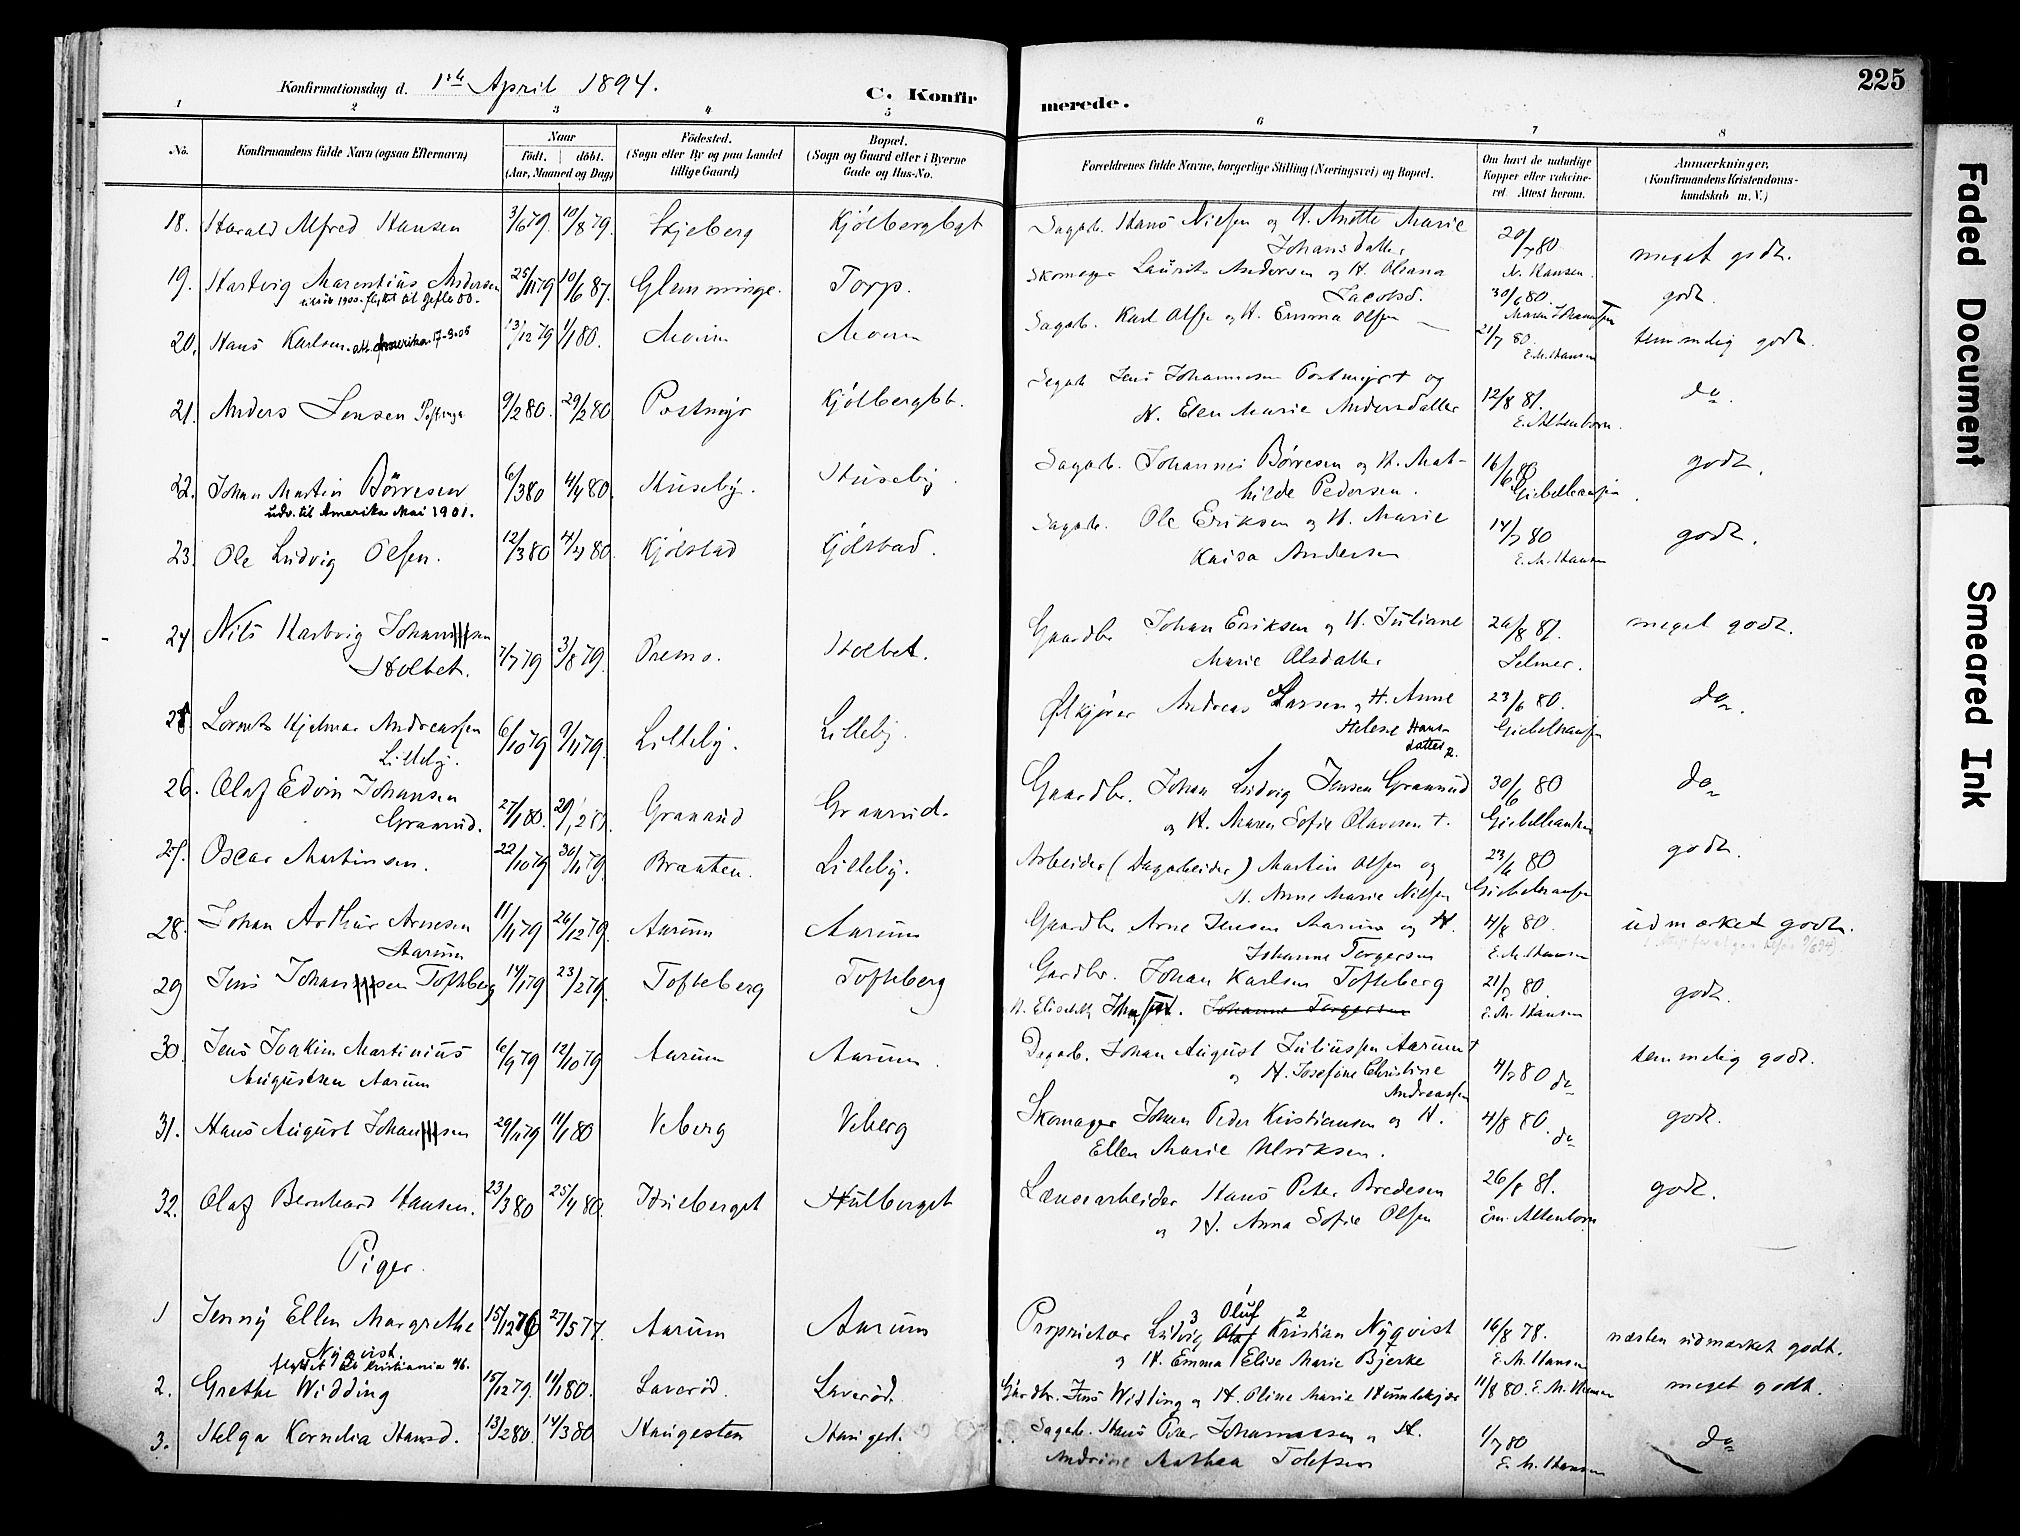 Konfirmationsdag d. 1ste April 1894.
C. Konfirmerede.
225
1 2 3 4 5 6 7 8
No.
Konfirmandens fulde Navn (ogsaa Efternavn)
Naar
födt. döbt.
(Aar, Maaned og Dag)
Födested.
(Sogn eller By og paa Landet
tillige Gaard)
Bopæl.
(Sogn og Gaard eller i Byerne
Gade og Hus-No.
Forældrenes fulde Navne, borgerlige Stilling (Næringsvei) og Bopæl.
Om havt de naturlige
Kopper eller vaccine-
ret. Attest herom.
Anmærkninger.
(Konfirmandens Kristendoms-
kundskab m. V.)
18. Harald Alfred Hansen 3/6 79. 10/8 79. Skjeberg Kjølbergbgt Sagarb. Hans Nielsen og H. Anette Marie
Johansdatter 20/7 80. N. Hansen. meget godt.
19. Hartvig Marentius Andersen 25/11 79 10/6 87. Glemminge. Torp. Skomager Laurits Andersen og H. Oliana
Jacobsd. 30/6 80. godt.
20. Hans Karlsen. att. Amerika 17-3-08 13/12 79 1/1 80. Moum Moum Sagarb. Karl Olsen og H. Emma Olsen 21/7 80. E. M. Hansen temmelig godt.
21. Anders Jensen 9/2 80. 29/2 80 Postmyr Kjølbergbt. Sagarb. Jens Johannesen Postmyr + og
H. Elen Marie Andersdatter 12/8 81. E. Altenborn. do.
22. Johan Martin Börresen 6/3 80 4/4 80. Huseby. Huseby. Sagarb. Johannes Börresen og H. Mat-
hilde Pedersen. 16/6 80 Giebelhausen godt.
udv. til Amerika Mai 1901.
23. Ole Ludvig Olsen. 12/3 80 4/4 80. Kjølstad Kjølstad. Sagarb. Ole Eriksen og H. Marie
Kaisa Andersen 14/7 80 E. M. Hansen godt.
24 Nils Hartvig Johansen
Holtet. 7/7 79 3/8 79. Premo. Holtet. Gaardbr Johan Eriksen og H. Juliane
Marie Olsdatter 26/8 87. Selmer. meget godt.
25. Lorents Hjelmar Andreassen
Lilleby. 6/10 79 9/11 79. Lilleby. Lilleby. Ølkjører Andreas Larsen og H. Anne
Helene Hans-
datter. 23/6 80. Giebelhausen do.
26. Olaf Edvin Johansen
Graarud. 27/1 80. Graarud Graarud. Gaardbr. Johan Ludvig Jensen Graarud
og H. Maren Sofie Olavesen +. 30/6 80 Giebelhausen do
27. Oscar Martinsen. 22/10 79 30/11 79. Braaten. Lilleby. Arbeider (Dagarbeider) Martin Olsen og
H. Anne Marie Nilsen 23/6 80 Giebelhausen godt.
28. Johan Arthur Arnesen
Aarum 11/11 79 26/12 79. Aarum Aarum Gaardbr Arne Jensen Aarum og H.
Johanne Torgersen 4/8 80. E. M. Hansen udmærket godt.
29 Jens Johansen Tofteberg 14/1 79 23/2 79. Tofteberg Tofteberg Gardbr. Johan Karlsen Tofteberg
H. Elisabeth Johansdt. Johanne Torgersen 21/7 80. E. M. Hansen godt.
30. Jens Joakim Martinius
Augustsen Aarum 6/9 79 12/10 79 Aarum Aarum. Dagarb. Johan August Juliussen Aarum +
og H. Josefine Christine
Andreassen 4/7 80 do temmelig godt.
31. Hans August Johansen 29/11 79 11/1 80 Veberg Veberg Skomager Johan Peder Kristiansen og H.
Ellen Marie Ulriksen. 4/8 80. do godt.
32. Olaf Bernhard Hansen. 23/3 80 25/4 80. Hueberget Hulberget Lænsearbeider Hans Peter Bredesen
og H. Anna Sofie Olsen 26/8 81. Em. Altenborn godt.
Piger.
1 Jenny Ellen Margrethe
Nyqvist. 15/12 76 27/5 77. Aarum Aarum Proprietær Ludvig Oluf Kristian Nyqvist
og H. Emma Elise Marie Bjerke 16/8 78. E. M. Hansen næsten udmærket godt.
flyttet til Kristiania 96.
2. Grethe Widding 15/12 79. 11/1 80. Laverød. Laverød. Gardbr. Jens Widding og H. Oline Marie Humlekjær 11/8 80. E. M. Hansen meget godt.
3. Helga Kornelia Hansd. 13/2 80. 14/3 80 Haugesten Hauget. Sagarb. Hans Peter Johannessen og H.
Andrine Mathea Tolefsen 1/7 80 E. M. Hansen do
Faded Document
Smeared Ink